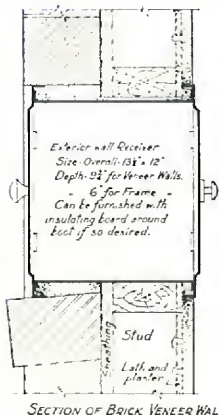 Exterior wall Receiver
Size-Overall-13½" x 12"
Depth-9¾" for Veneer Walls.
" 6" for Frame "
Can be furnished with
insulating board around
boot if so desired.
Sheathing
Stud
Lath and
plaster
SECTION OF BRICK VENEER WALL